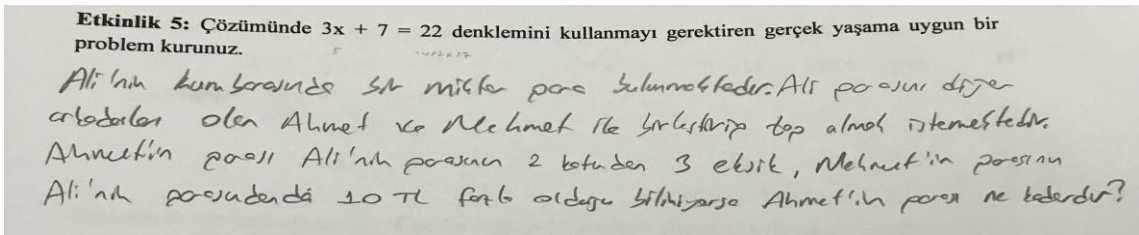 Etkinlik 5: Çözümünde 3x + 7 = 22 denklemini kullanmayı gerektiren gerçek yaşama uygun bir
problem kurunuz.
Ali'nin kumbarasında bir miktar para bulunmaktadır. Ali parasını diğer
arkadaşları olan Ahmet ve Mehmet ile birleştirip top almak istemektedir.
Ahmet'in parası Ali'nin parasının 2 katından 3 eksik, Mehmet'in parasının
Ali'nin parasından da 10 TL fazla olduğu biliniyorsa Ahmet'in parası ne kadardır?